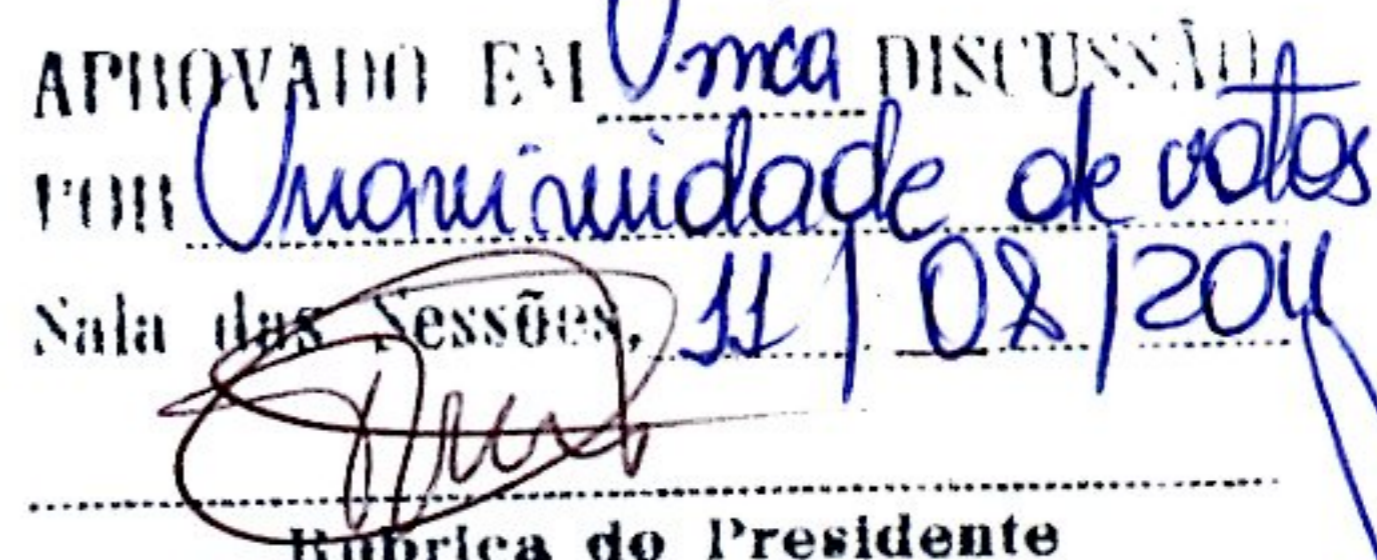 APROVADO EM Única DISCUSSÃO
POR Unanimidade de votos
Sala das Sessões, 11 / 08 / 2011
Rubrica do Presidente